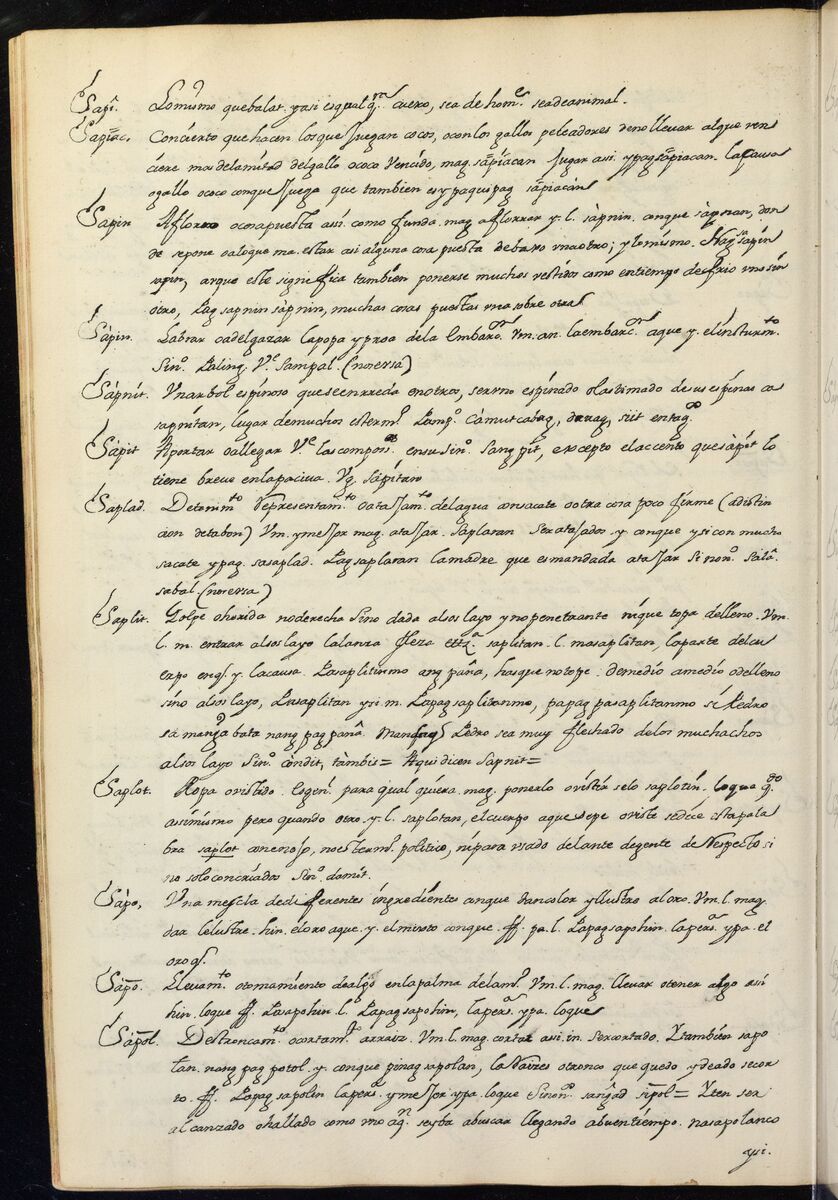 Sapi. Lo mismo que balat. y asi es qual qra cuero, sea de home sea de animal.
Sapiac. Concierto que hacen los que Juegan cocos, o con los gallos peleadores de no llevar al que ven
ciere mas de la mitad del gallo o coco Vencido, mag. sapiacan Jugar asi y pag sapiacan. la causa
o gallo o coco con que Juega que tambien es y paqui pag sapiacan
Sapin Aforro o cosa puesta asi. como funda. mag. aforrar y. l. sapnin. con que sapnan, don
de se pone o a lo que ma. estar asi alguna cosa puesta debaxo una otro; y lo mismo. Nag sapin
sapin, aunque este significa tambien ponerse muchos vestidos como en tiempo de frio uno sin
otro, Pag sapnin sapnin, muchas cosas puestas una sobre otras
Sápin. Labrar o adelgazar la popa y proa de la Embaron. Vm. an. la embarcon. a que y. el insturmto
Sino. Paling. Ve. Sampal. (no versa)
Sápnit. Un arbol espinoso que se enrreda en otros, ser uno espinado o lastimado de sus espinas ca
sapnitan, lugar de muchos es termo. Pampo. Camutcabag, dauag, siit en tago.
Sápit Aportar o allegar Ve. las compons. en su Sino. Sangpit, excepto el accento que sápit lo
tiene breve en la paciva. Vg. Sápitan
Saplad. Detenimto Represtentamto o atajamto del agua con sacate o otra cosa poco firme (a distin
cion de tabon) Vm. y mejor mag. atajar. Saplaran Ser atajados y con que y si con mucho
sacate y pag. sasaplad. Pag saplaran la madre que es mandada atajar Sinono. Sala.
sabal. (no versa)
Saplit. Golpe o herida no derecha Sino dada al soslayo y no penetrante ni que topa de lleno. Vm.
l. m. entrar al soslayo la lanza flecha ettza. saplitan. l. masaplitan, la parte del cu
erpo en q. y la causa. Pasaplitinmo ang pana, has que no tope. de medio a medio o de lleno
sino al soslayo, Pasaplitan y si m. Papag saplitanmo, papag pasaplitanmo si Pedro
sa manga bata nang pag pana Pedro sea muy flechado de los muchachos
al soslayo Sino. cóndit, támbis = Aqui dicen Sapnit =
Saplot. Ropa o vistido. En genl. para qual quiera. mag. ponerlo o vistirselo saplotin. lo que qdo
assimismo pero quando otro. y. l. saplotan, el cuerpo a que se pe o viste se dice esta pala
bra saplot a menos p, no es termo. politico, ni para usado delante de gente de Respecto si
no solo con criados Sino. damit.
Sápo, Una mezcla de diferentes ingredientes con que dan color y llustro al oro. Vm. l. mag.
dar le lustre. hin. el oro a que. y. el mixto con que ff. pa. l. Papag sapohin. la persa. y pa. el
oro q.
Sapo. Llevamto o tomamiento de algo en la palma de la mo. Vm. l. mag. llevar o tener algo asi
hin. lo que ff. Pasapohin. l. Papag sapohin, la persa. y pa. lo que
Sápol. Destroncamto o cortamto a rraiz. Vm. l. mag. cortar asi. in. ser cortado. Y tambien sapo
lan. nang pag potol. y. con que pinag sapolan, la Raices o tronco que quedo y deado se cor
to. ff. Papag sapolin la persa. y mejor y pa. lo que Sinono. sangad sipol = Y ten ser
alcanzado o hallado como uno aqn. se yba a buscar llegando a buen tiempo. nasapolanco
asi.